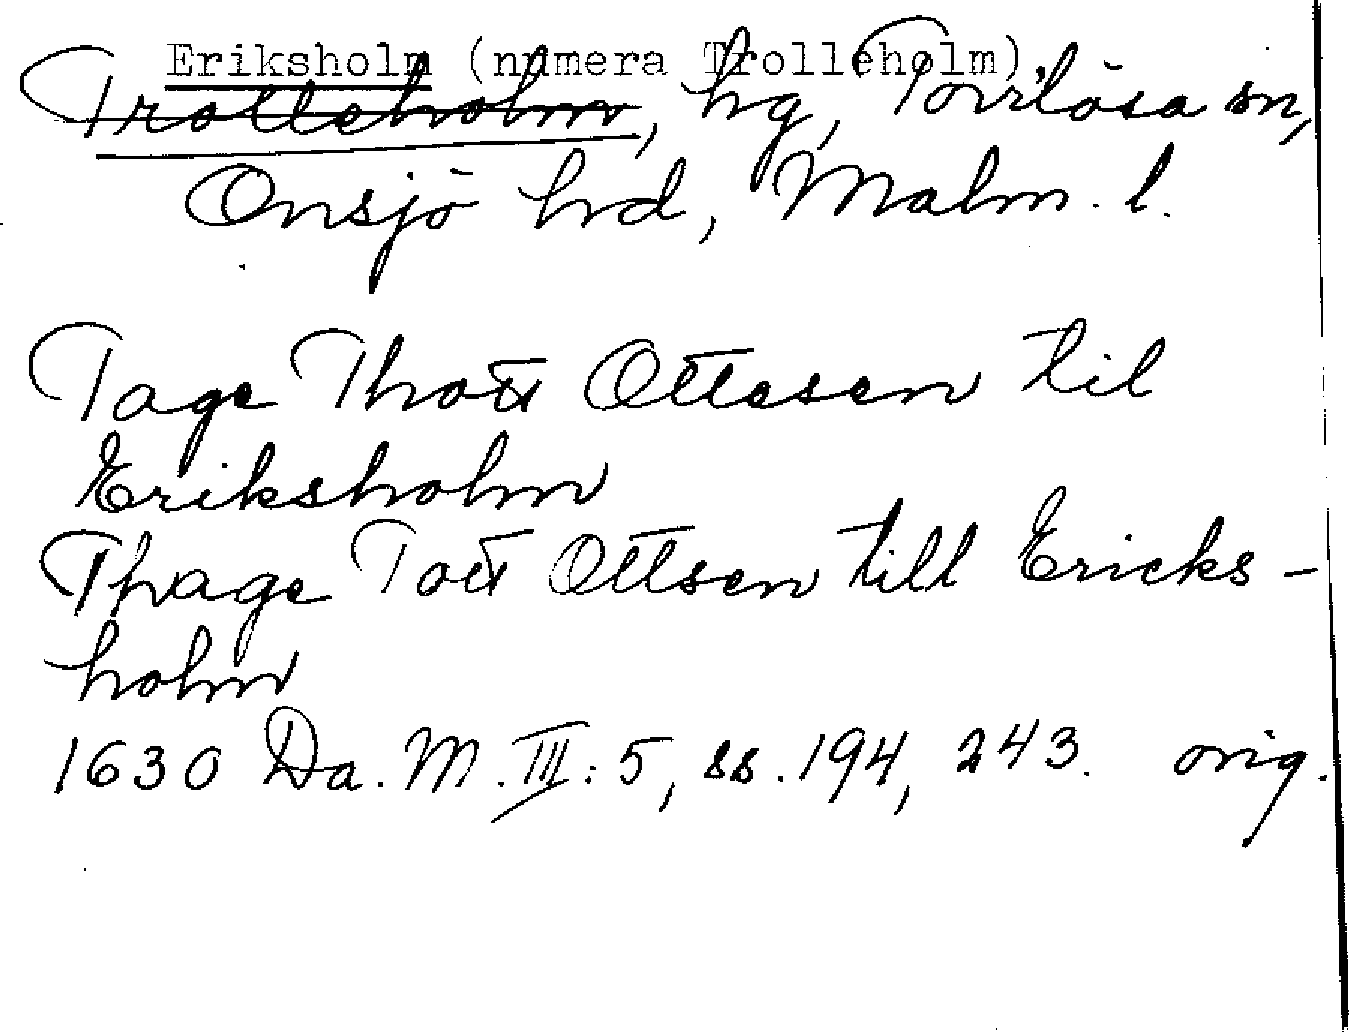 Eriksholm (numera Trolleholm)
Trolleholm, hg, Torrlösa sn,
Onsjö hrd, Malm. l.
Tage Thott Ottesen til
Eriksholm
Thage Tott Ottsen till Ericks-
holm
1630 Da. M. III: 5, ss. 194, 243. orig.